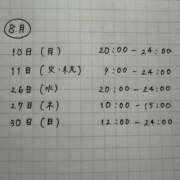 8月
10日 (月) 20:00 - 24:00
11日 (火・祝) 9:00 - 24:00
26日 (水) 20:00 - 24:00
27日 (木) 10:00 - 15:00
30日 (日) 12:00 - 24:00